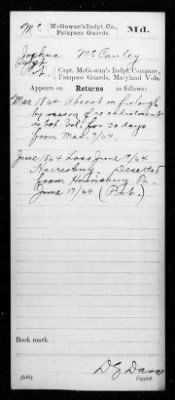 Mc McGowan's Indpt. Co., Md.
Patapsco Guards.
Joshua McCauley
Pvt., Capt. McGowan's Indpt. Company,
Patapsco Guards, Maryland Vols.
Appears on Returns as follows:
Mar 1864 Absent on furlough
by reason of re enlistment
as Vet. Vol. for 30 days
from Mar. 7/64.
June 1864 Loss June 7/64
Harrisburg. Deserted
from Harrisburg Pa.
June 17/64 (Pvt.)
Book mark
(546)
Copyist.